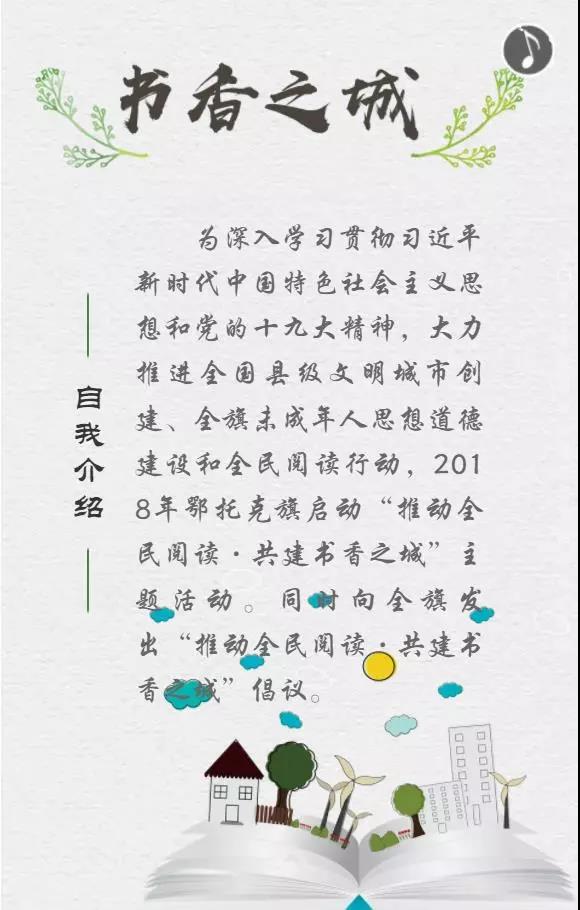 书香之城
自我介绍
为深入学习贯彻习近平
新时代中国特色社会主义思
想和党的十九大精神，大力
推进全国县级文明城市创
建、全旗未成年人思想道德
建设和全民阅读行动，201
8年鄂托克旗启动“推动全
民阅读·共建书香之城”主
题活动。同时向全旗发
出“推动全民阅读·共建书
香之城”倡议。